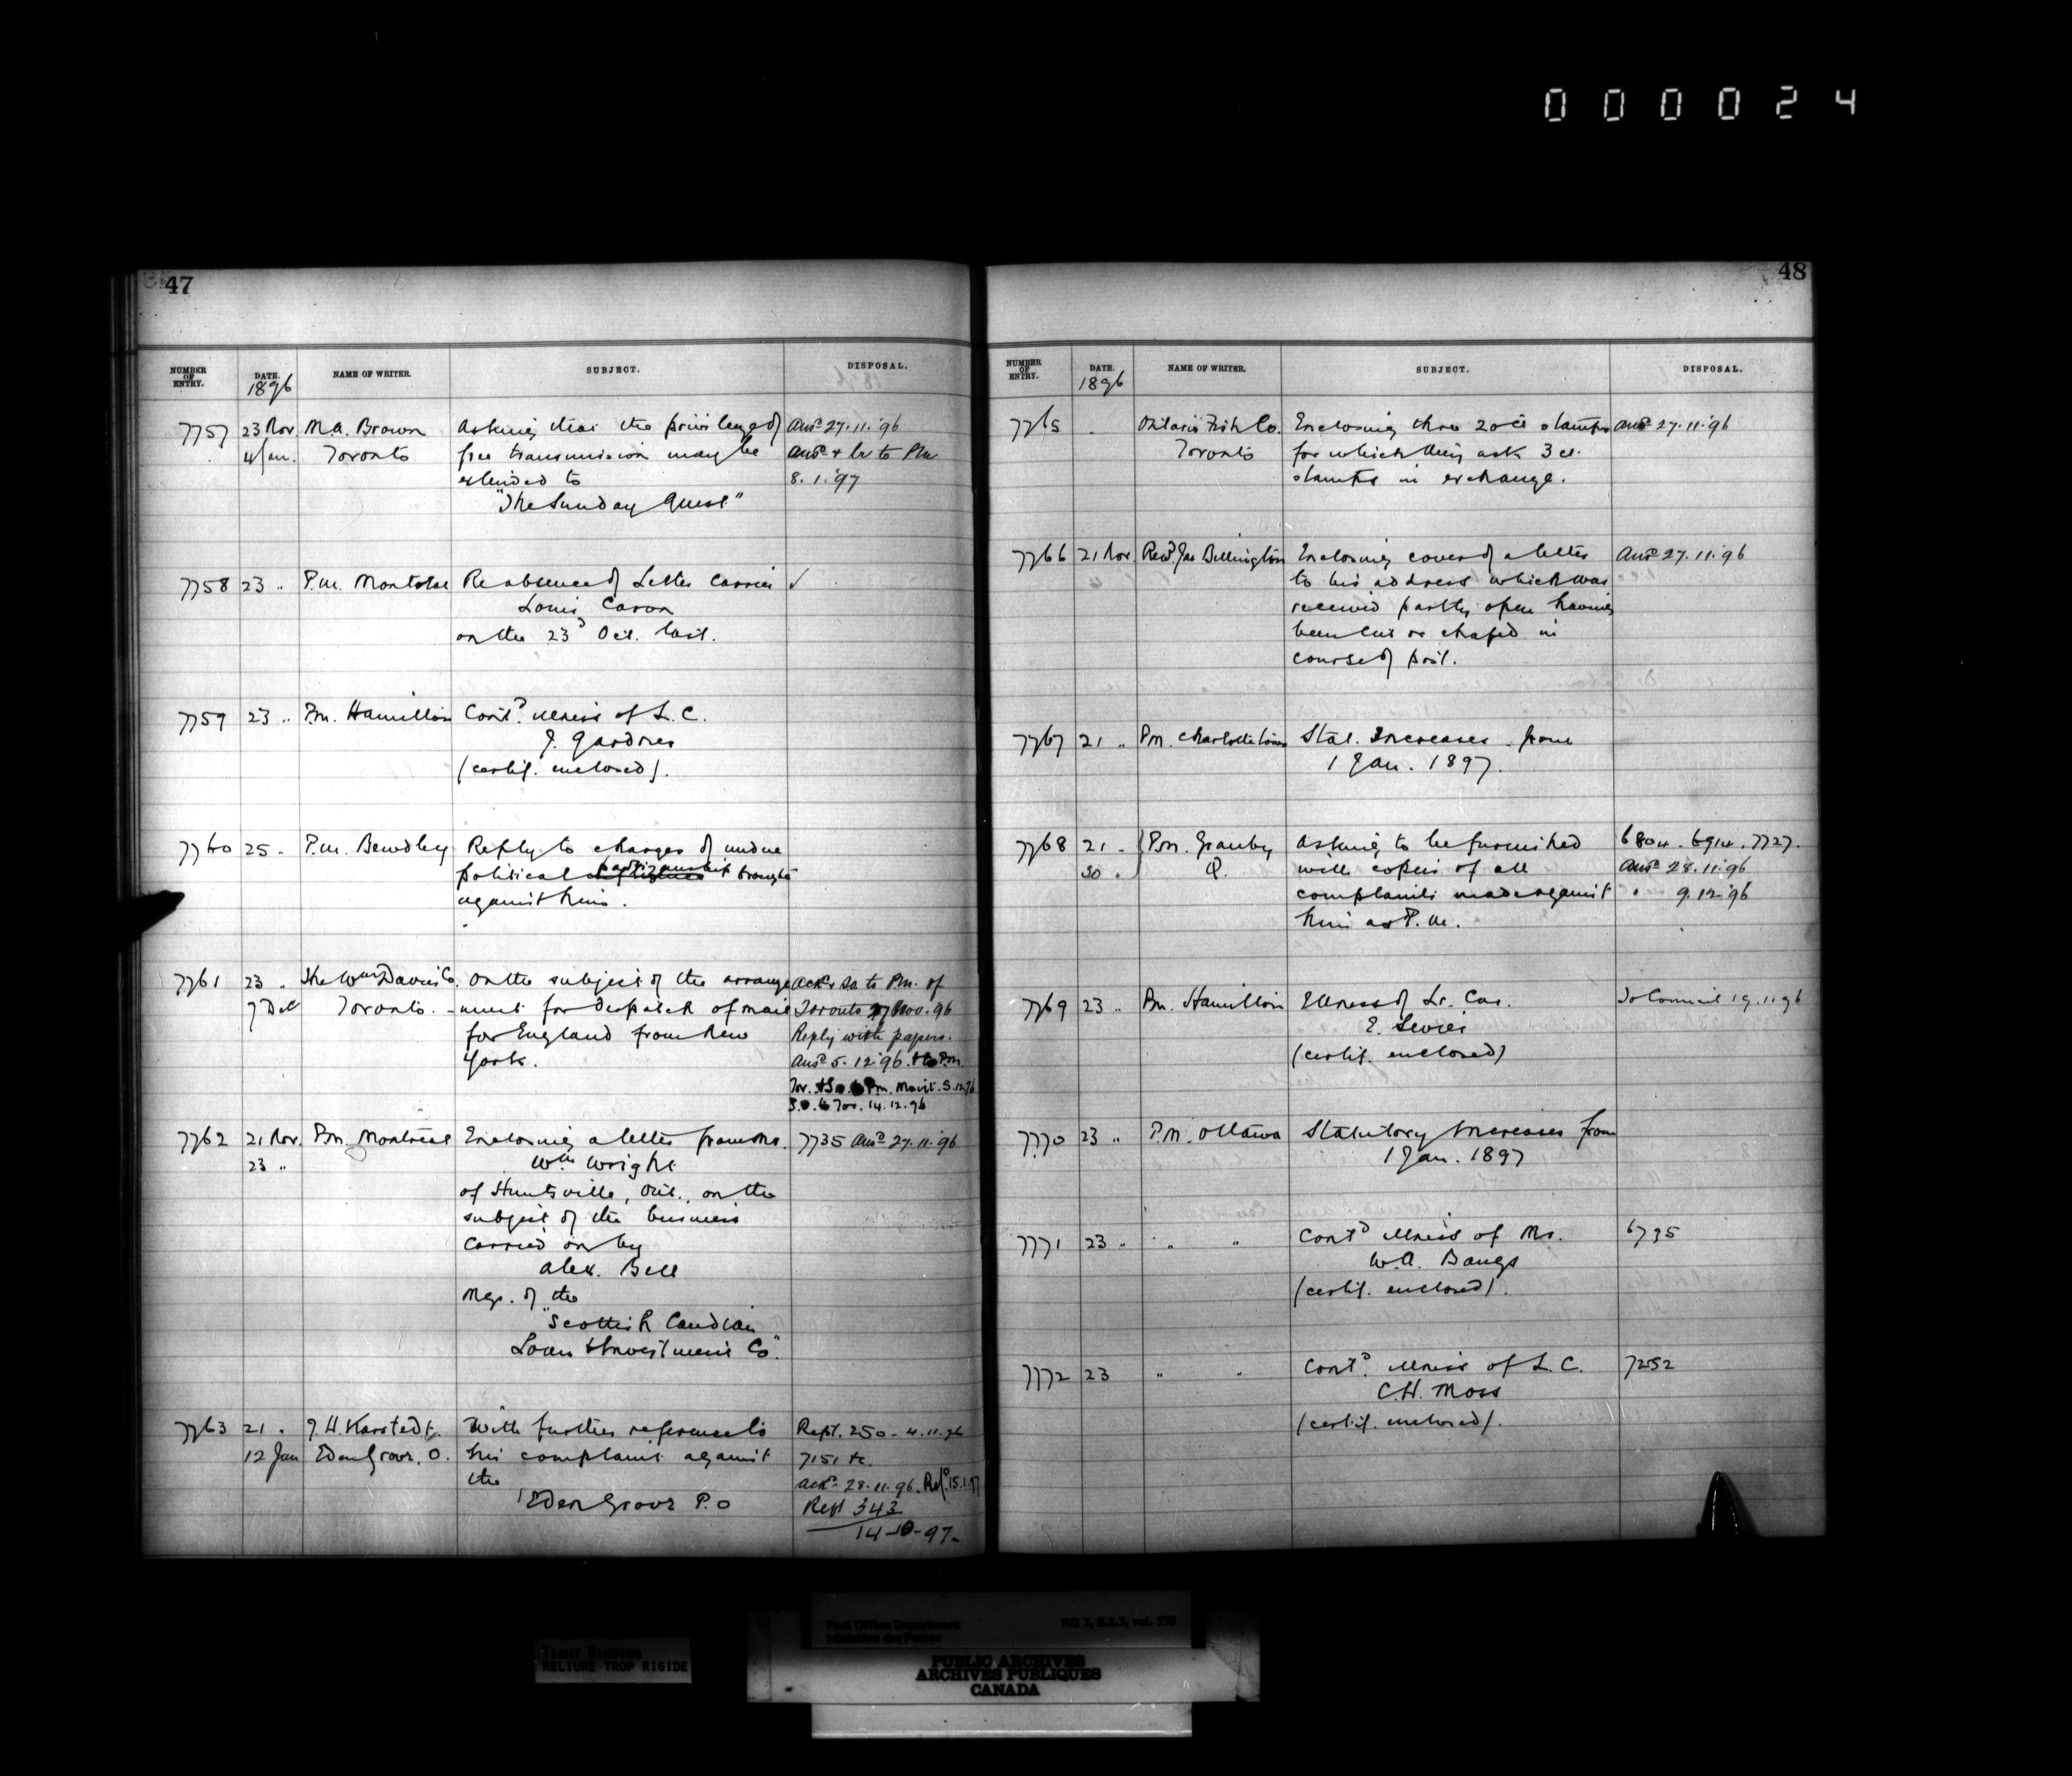 000024
47
NUMBER OF ENTRY. DATE. 1896 NAME OF WRITER. SUBJECT. DISPOSAL.
7757 23 Nov. M.A. Brown Asking that the privilege of Ansd 27.11.'96
4 Jan. Toronto free transmission may be Ansd & to PM
extended to 8.1.'97
"The Sunday Guest"
7758 23 " P.M. Montreal Re absence of Letter Carrier ✓
Louis Caron
on the 23d Oct. last.
7759 23 " P.M. Hamilton Contd illness of L.C.
J. Gardner
(certif. enclosed).
7760 25 " P.M. Bewdley Reply to charges of undue
political partizanship brought
against him.
7761 23 " The Wm Davies Co. On the subject of the arrange Ackd & So. to P.M. of
7 Dec Toronto. -ment for despatch of mail Toronto 27 Nov. 96
for England from New Reply with papers.
York. Ansd 5.12.'96. & to P.M.
Tor. & So. to P.M. Mont. 5.12.96
S.O. to Tor. 14.12.96
7762 21 Nov. P.M. Montreal Enclosing a letter from Mr. 7735 Ansd 27.11.'96
23 " Wm Wright
of Huntsville, Ont., on the
subject of the business
carried on by
Alex. Bell
Mgr. of the
"Scottish Candian
Loan & Investment Co."
7763 21 " J.H. Karstedt, With further reference to Rept. 250 - 4.11.96
12 Jan Eden Grove, O. his complaint against 7151 &c.
the ackd 28.11.96. Refd 15.1.97
Eden Grove P.O Rept 343
14-10-97-
48
NUMBER OF ENTRY. DATE. 1896 NAME OF WRITER. SUBJECT. DISPOSAL.
7765 Ontario Fish Co. Enclosing three 20ct stamps Ansd 27.11.'96
Toronto for which they ask 3 ct.
stamps in exchange.
7766 21 Nov. Revd Jas Billington Enclosing cover of a letter Ansd 27.11.'96
to his address which was
received partly open having
been cut or chafed in
course of post.
7767 21 " P.M. Charlottetown Stat. Increases from
1 Jan. 1897.
7768 21 " P.M. Granby Asking to be furnished 6804. 6914. 7727.
30 " Q. with copies of all Ansd 28.11.96
complaints made against " 9.12.'96
him as P.M.
7769 23 " P.M. Hamilton Illness of Lr. Car. To Council 19.11.96
E.
(certif. enclosed)
7770 23 " P.M. Ottawa Statutory Increases from
1 Jan. 1897
7771 23 " " " Contd illness of Mr. 6735
W.A. Bangs
(certif. enclosed).
7772 23 " " Contd illness of L.C. 7252
C.H. Moss
(certif. enclosed).
Post Office Department RG 3, B.2.3, vol. 550
Ministère des Postes
TIGHT BINDING
RELIURE TROP RIGIDE
PUBLIC ARCHIVES
ARCHIVES PUBLIQUES
CANADA